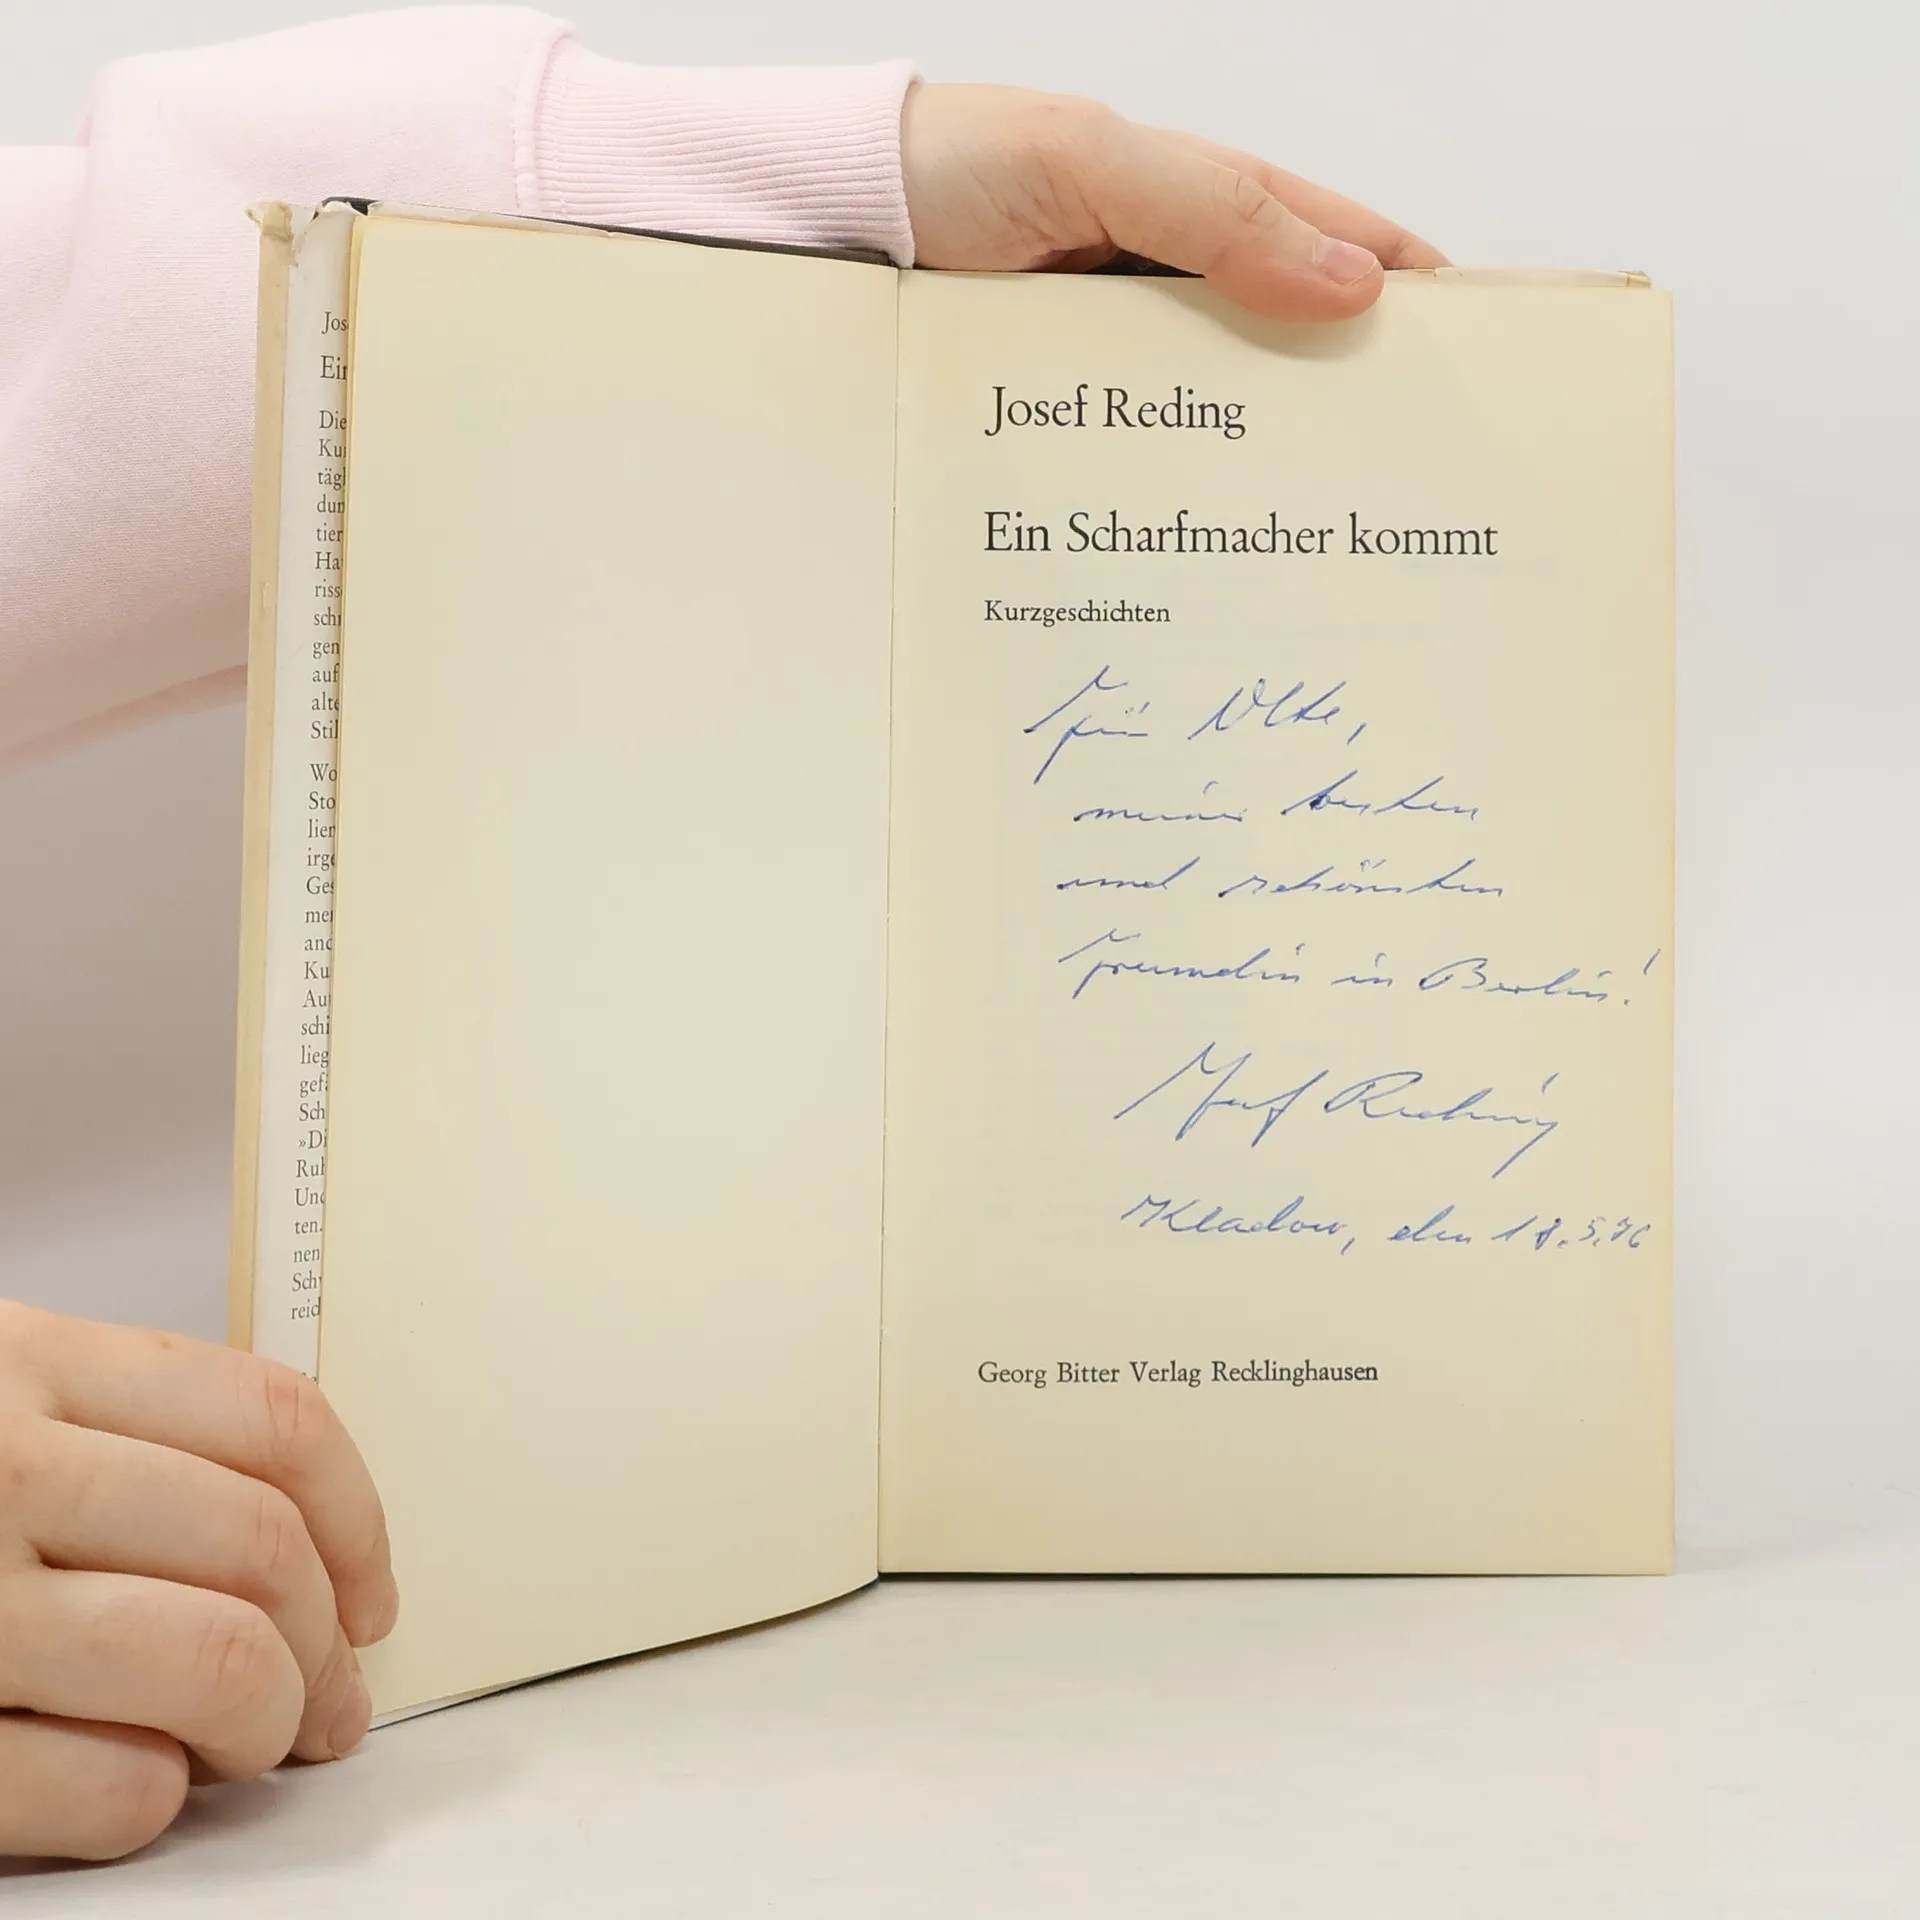 Jos
Ein
Die
Ku
tägl
dun
tier
Ha
riss
schr
gen
auf
alte
Stil
Wo
Sto
lier
irge
Ges
mer
and
Ku
Au
schi
lieg
gef
Sch
»Di
Ruh
Und
ten.
nen
Sch
reich
Josef Reding
Ein Scharfmacher kommt
Kurzgeschichten
Für
meiner besten
und schönsten
Freundin in Berlin!
Josef Reding
Kladow, den 18.5.76
Georg Bitter Verlag Recklinghausen